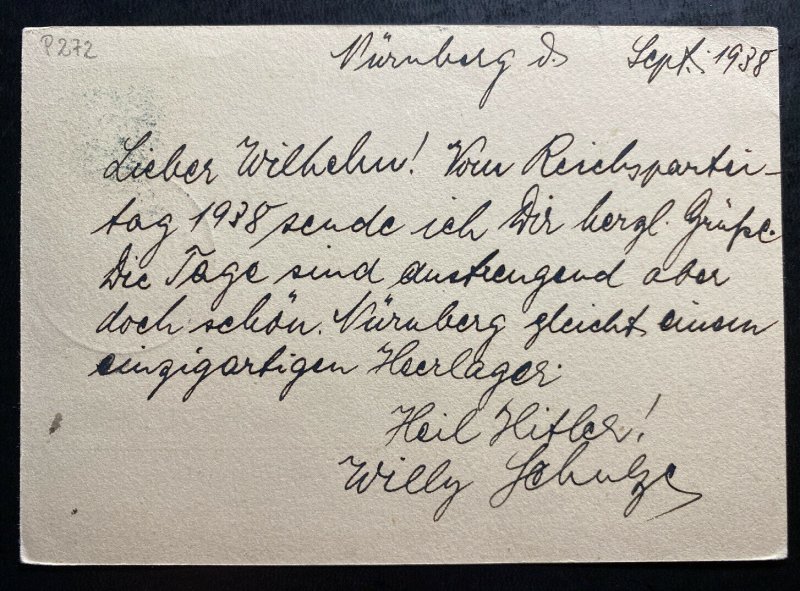 P272
Nürnberg d. Sept. 1938
Lieber Wilhelm! Vom Reichspartei-
tag 1938 sende ich Dir herzl. Grüße.
Die Tage sind anstrengend aber
doch schön. Nürnberg gleicht einem
einzigartigen Heerlager.
Heil Hitler!
Willy Schulze